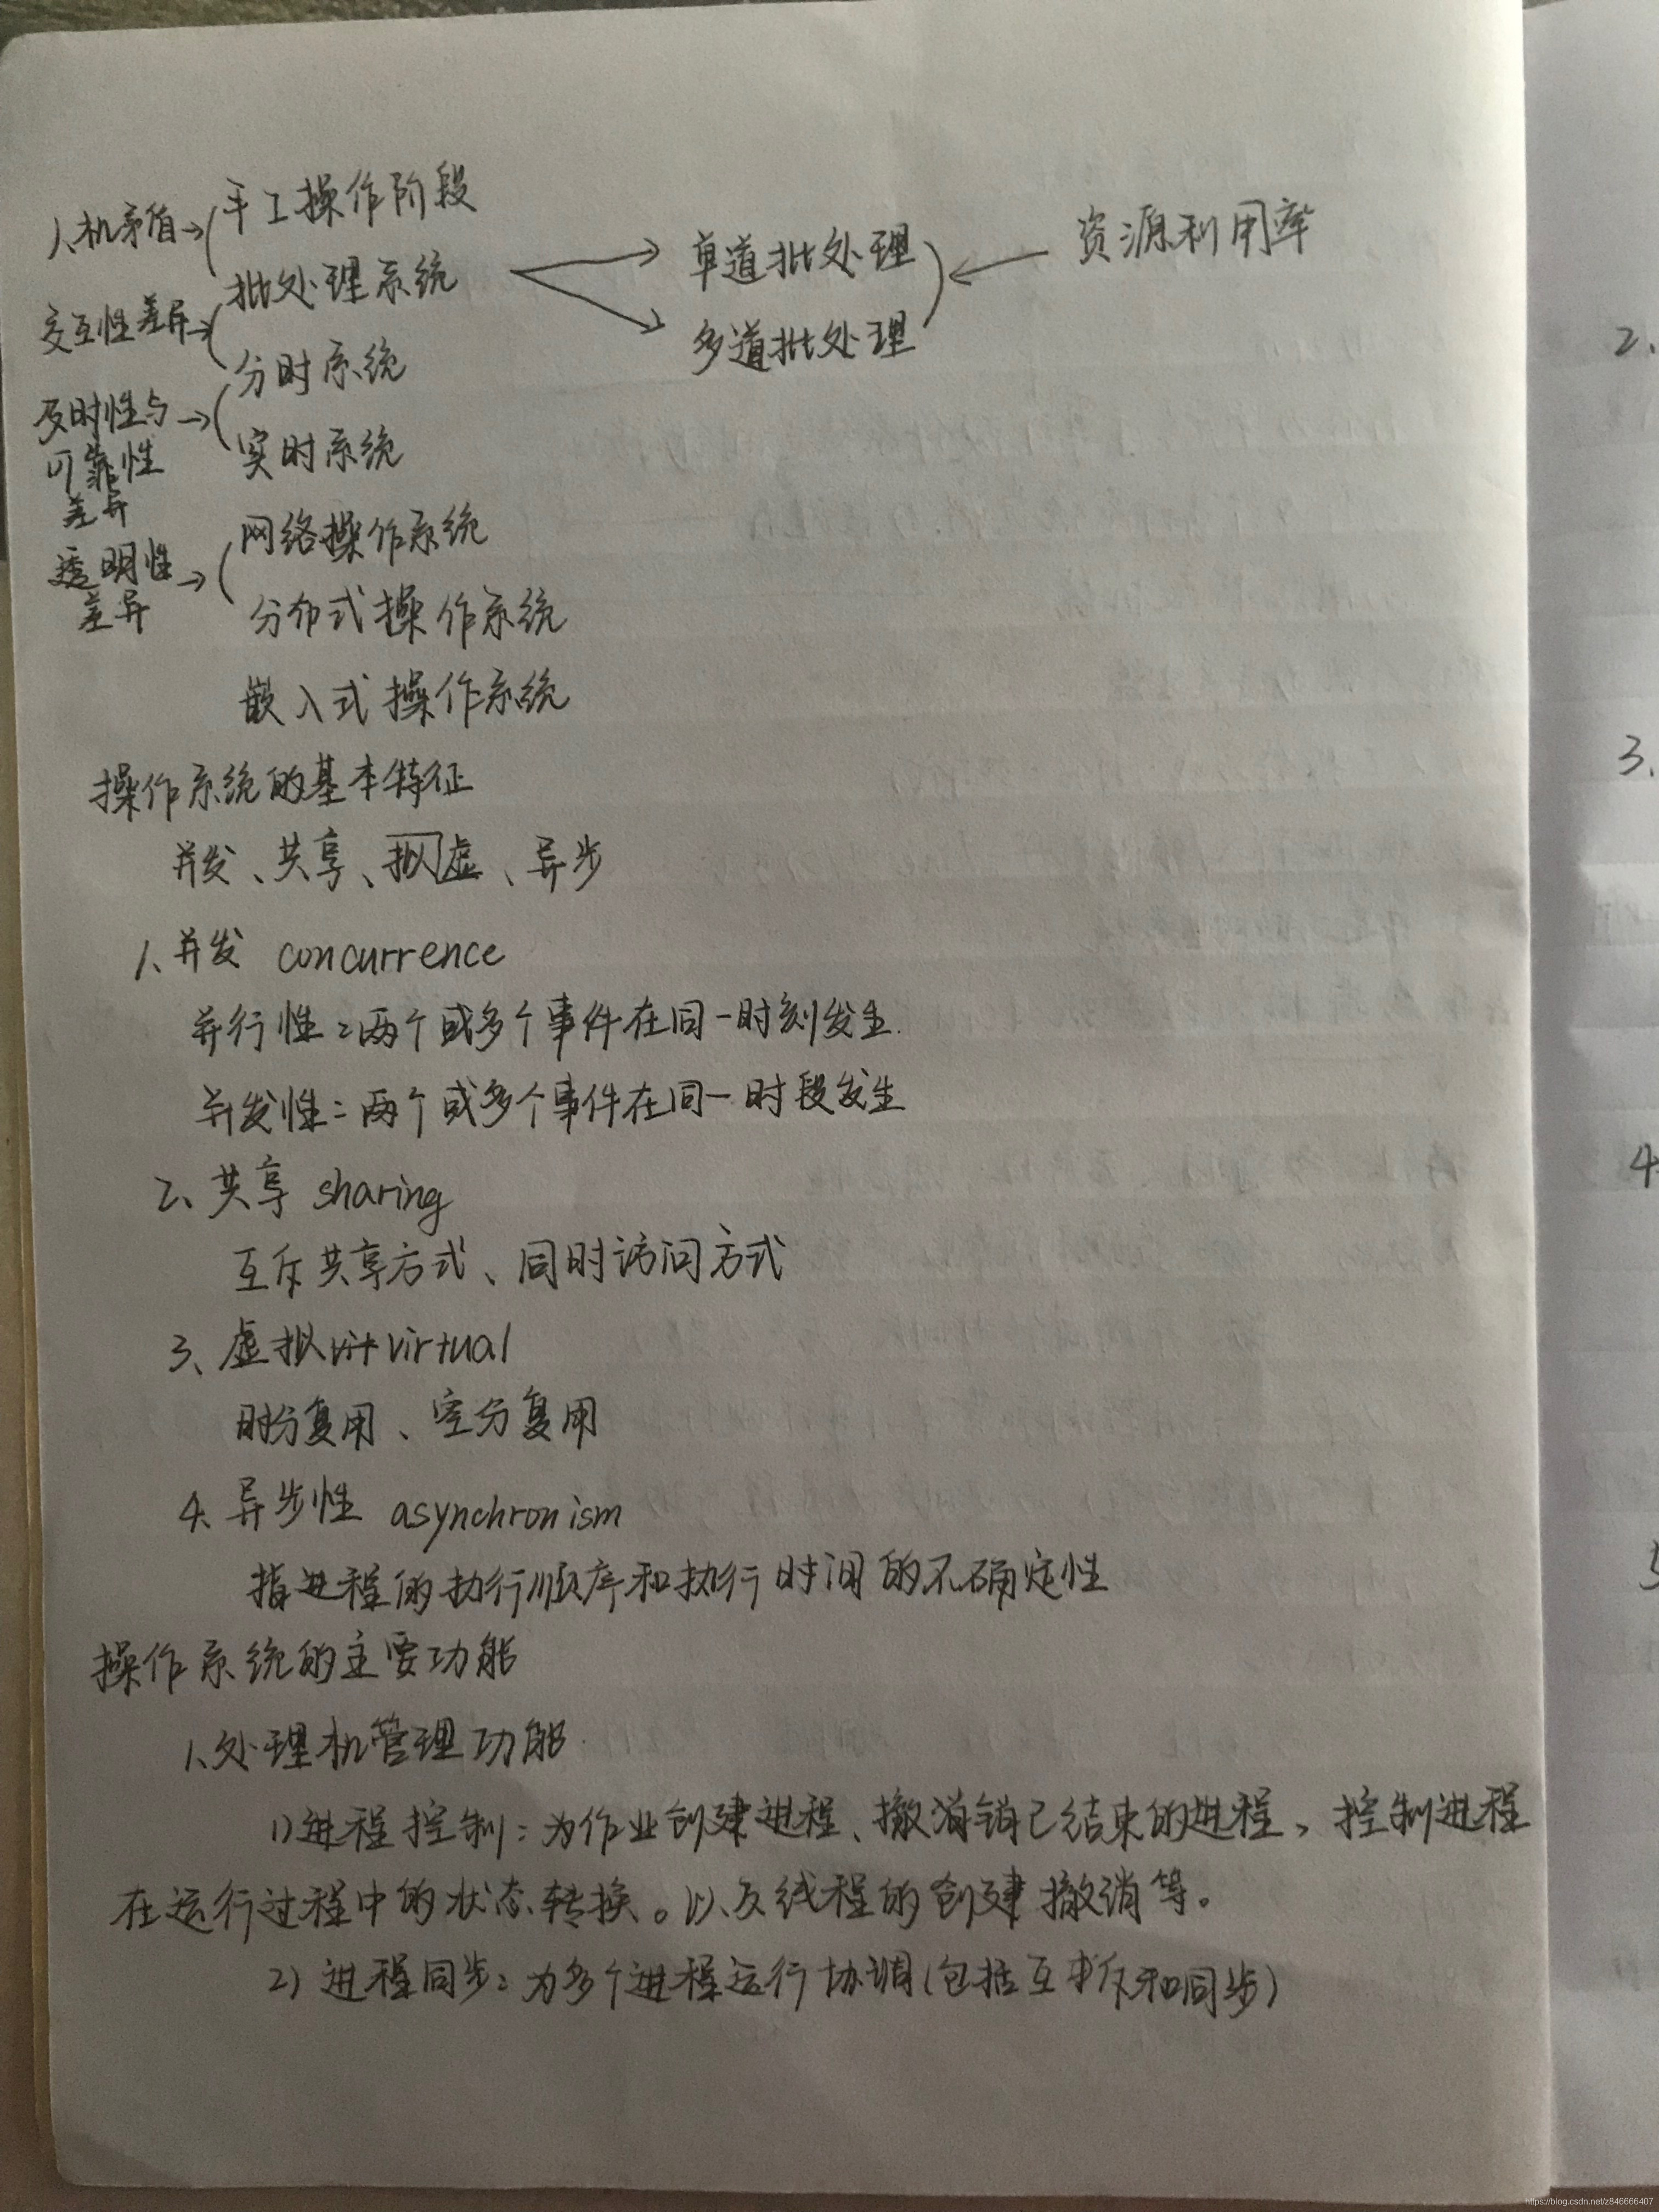 人机矛盾→ 手工操作阶段
批处理系统 单道批处理 ← 资源利用率
交互性差异→ 多道批处理
分时系统
及时性与→
可靠性 实时系统
差异
网络操作系统
透明性→
差异 分布式操作系统
嵌入式操作系统
操作系统的基本特征
并发、共享、拟虚、异步
1、并发 concurrence
并行性:两个或多个事件在同一时刻发生.
并发性:两个或多个事件在同一时段发生
2、共享 sharing
互斥共享方式、同时访问方式
3、虚拟 virtual
时分复用、空分复用
4、异步性 asynchronism
指进程的执行顺序和执行时间的不确定性
操作系统的主要功能
1、处理机管理功能
1)进程控制:为作业创建进程、撤消销已结束的进程,控制进程
在运行过程中的状态转换。以及线程的创建撤消等。
2)进程同步:为多个进程运行协调(包括互斥和同步)
2.
3.
4
5
https://blog.csdn.net/z846666407